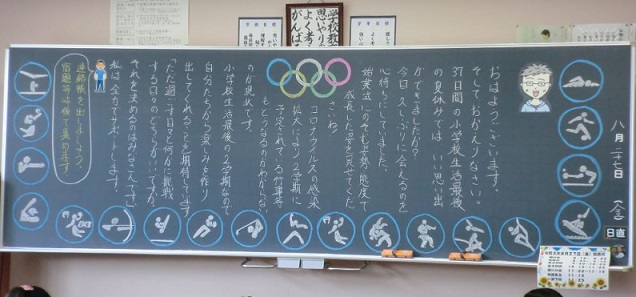 学校教
思いやり
よく考
がんば
八月二十七日（金）
日直
おはようございます、
そして、おかえりなさい。
37日間の小学校生活最後
の夏休みでは いい思い出
ができましたか?
今日、久しぶりに会えるのを
心待ちにしていました。
始業式にのぞむ姿勢、態度で
成長した姿を見せてください
さいね。
コロナウイルスの感染
拡大により2学期に
予定されている行事等
もどうなるのかわからない
のが現状です。
小学校生活最後の2学期なので
自分たちから楽しみを作り
出してくれることを期待してます
「ただ過ごす日々」「何かに挑戦
する日々」のどちらがいいですか。
それを決めるのはみなさんです!
私は全力でサポートします。
連絡帳を出しましょう。
宿題等は後で集めます。